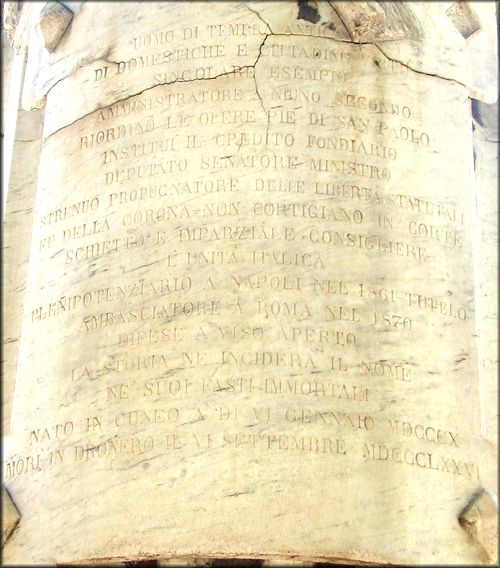 UOMO DI TEMPRA ANTICA
DI DOMESTICHE E CITTADINE
SINGOLARE ESEMPIO
AMMINISTRATORE A NIUNO SECONDO
RIORDINÒ LE OPERE PIE DI SAN PAOLO
INSTITUÌ IL CREDITO FONDIARIO
DEPUTATO SENATORE MINISTRO
STRENUO PROPUGNATORE DELLE LIBERTÀ STATUTALI
E DELLA CORONA NON CORTIGIANO IN CORTE
SCHIETTO E IMPARZIALE CONSIGLIERE
L'UNITÀ ITALICA
PLENIPOTENZIARIO A NAPOLI NEL 1861 TUTELO
AMBASCIATORE A ROMA NEL 1870
DIFESE A VISO APERTO
LA STORIA NE INCIDERÀ IL NOME
NE' SUOI FASTI IMMORTALI
NATO IN CUNEO A DI VI GENNAIO MDCCCX
MORÌ IN DRONERO IL VI SETTEMBRE MDCCCLXXVI